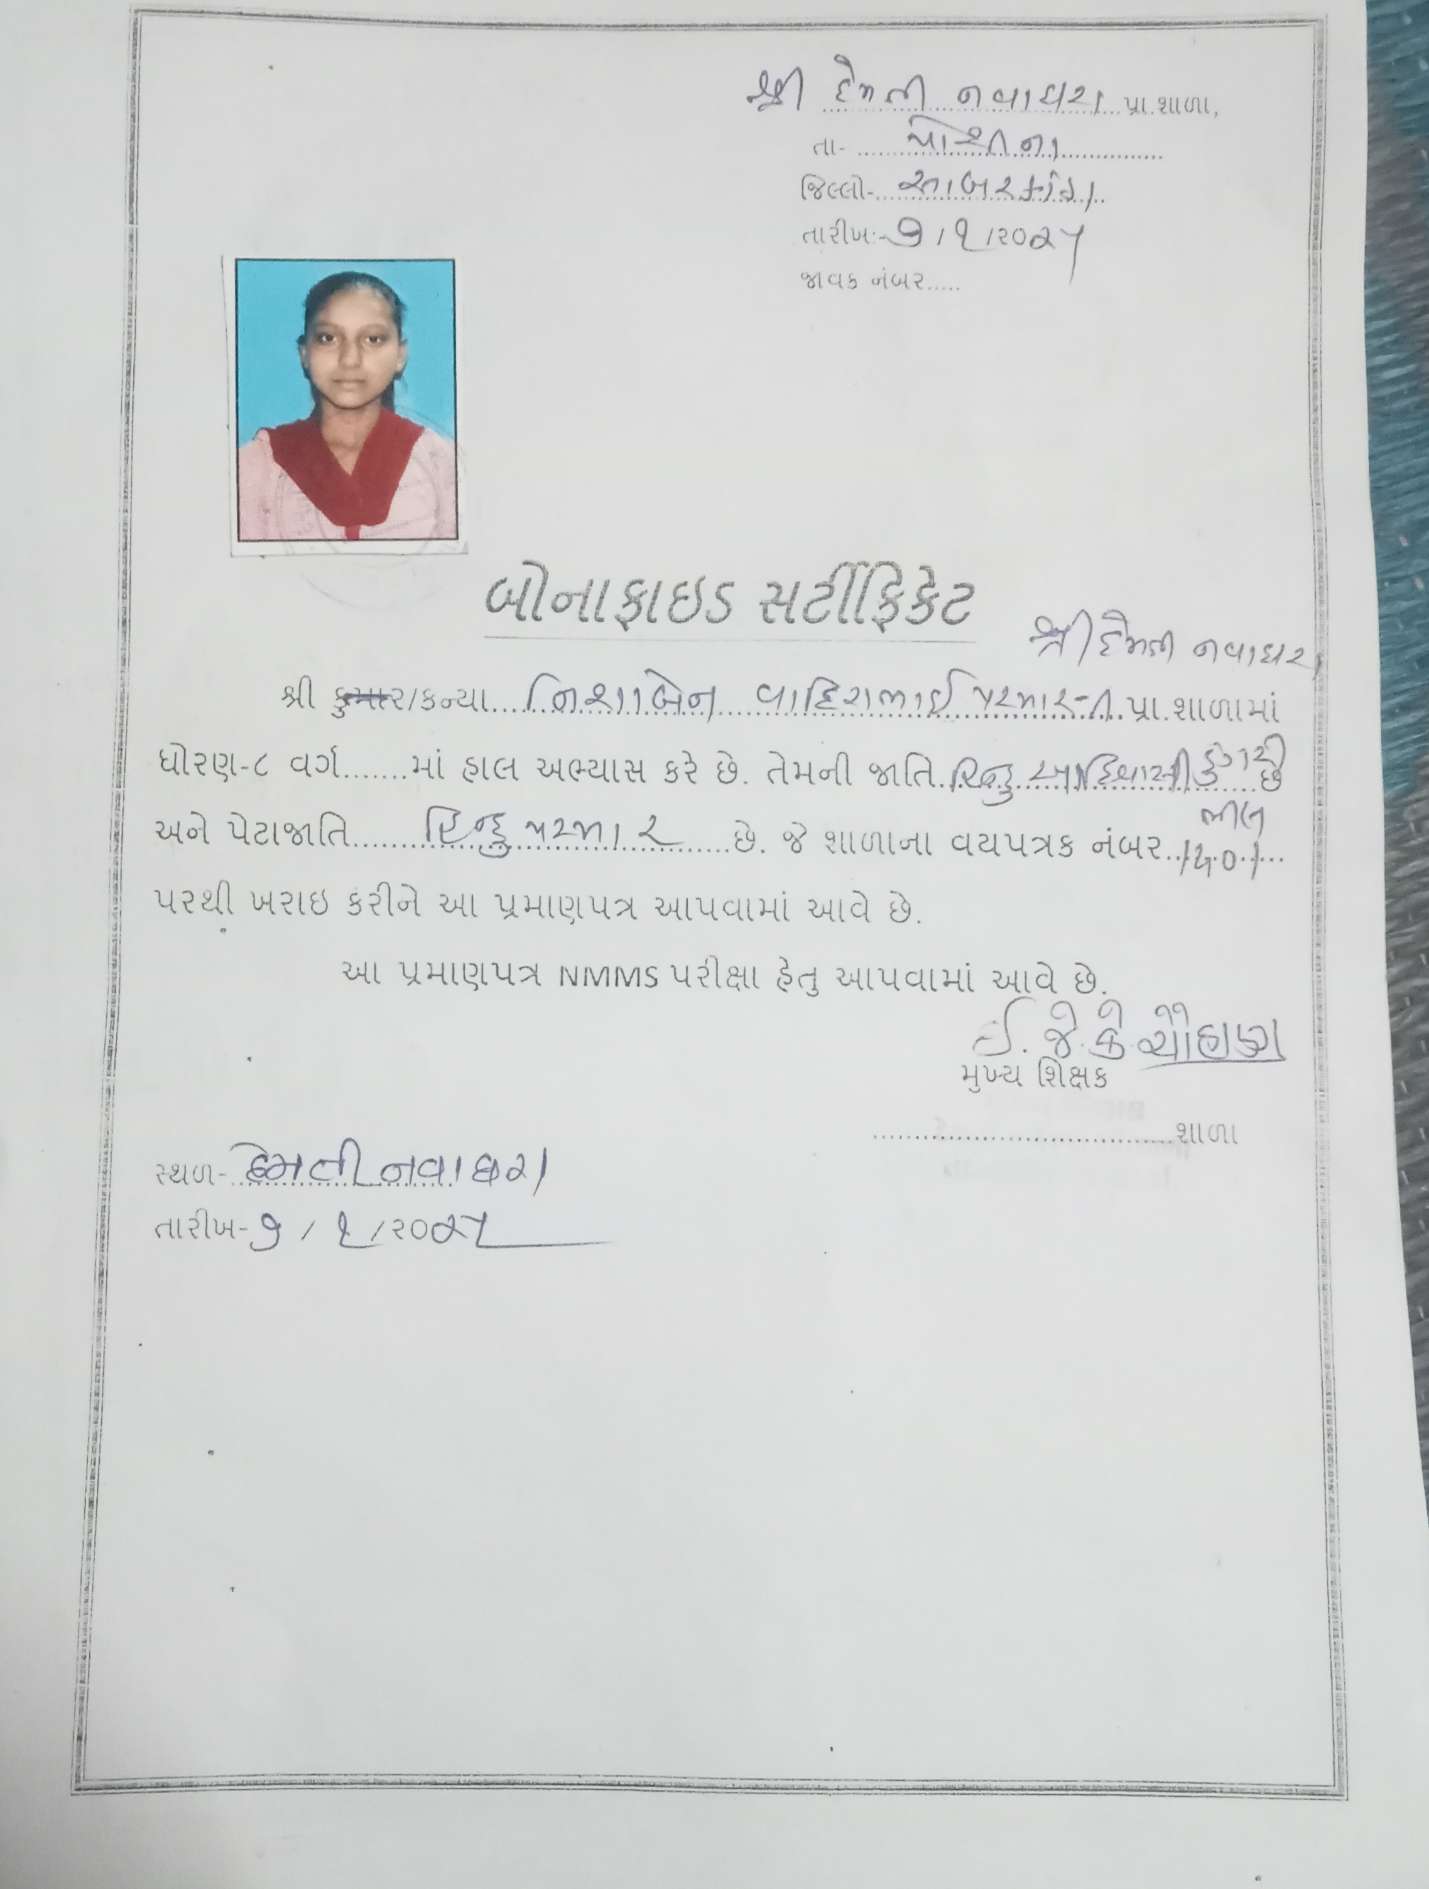 શ્રી હેમતી નવાઘરા પ્રા.શાળા,
તા- પોશીના
જિલ્લો- સાબરકાંઠા
તારીખ:- ૭/૧/૨૦૨૫
જાવક નંબર.....
બોનાફાઇડ સર્ટીફિકેટ
શ્રી હેમતી નવાઘરા
શ્રી કુમાર/કન્યા નિશાબેન પરમાર પ્રા.શાળામાં
ધોરણ-૮ વર્ગ.......માં હાલ અભ્યાસ કરે છે. તેમની જાતિ હિન્દુ આદિવાસી ડુંગરી છે
ભીલ
અને પેટાજાતિ હિન્દુ પરમાર છે. જે શાળાના વયપત્રક નંબર
પરથી ખરાઇ કરીને આ પ્રમાણપત્ર આપવામાં આવે છે.
આ પ્રમાણપત્ર NMMS પરીક્ષા હેતુ આપવામાં આવે છે.
ઈ. જે. કે. ચૌહાણ
મુખ્ય શિક્ષક
શાળા
સ્થળ- હેમતી નવાઘરા
તારીખ- ૭/૧/૨૦૨૫